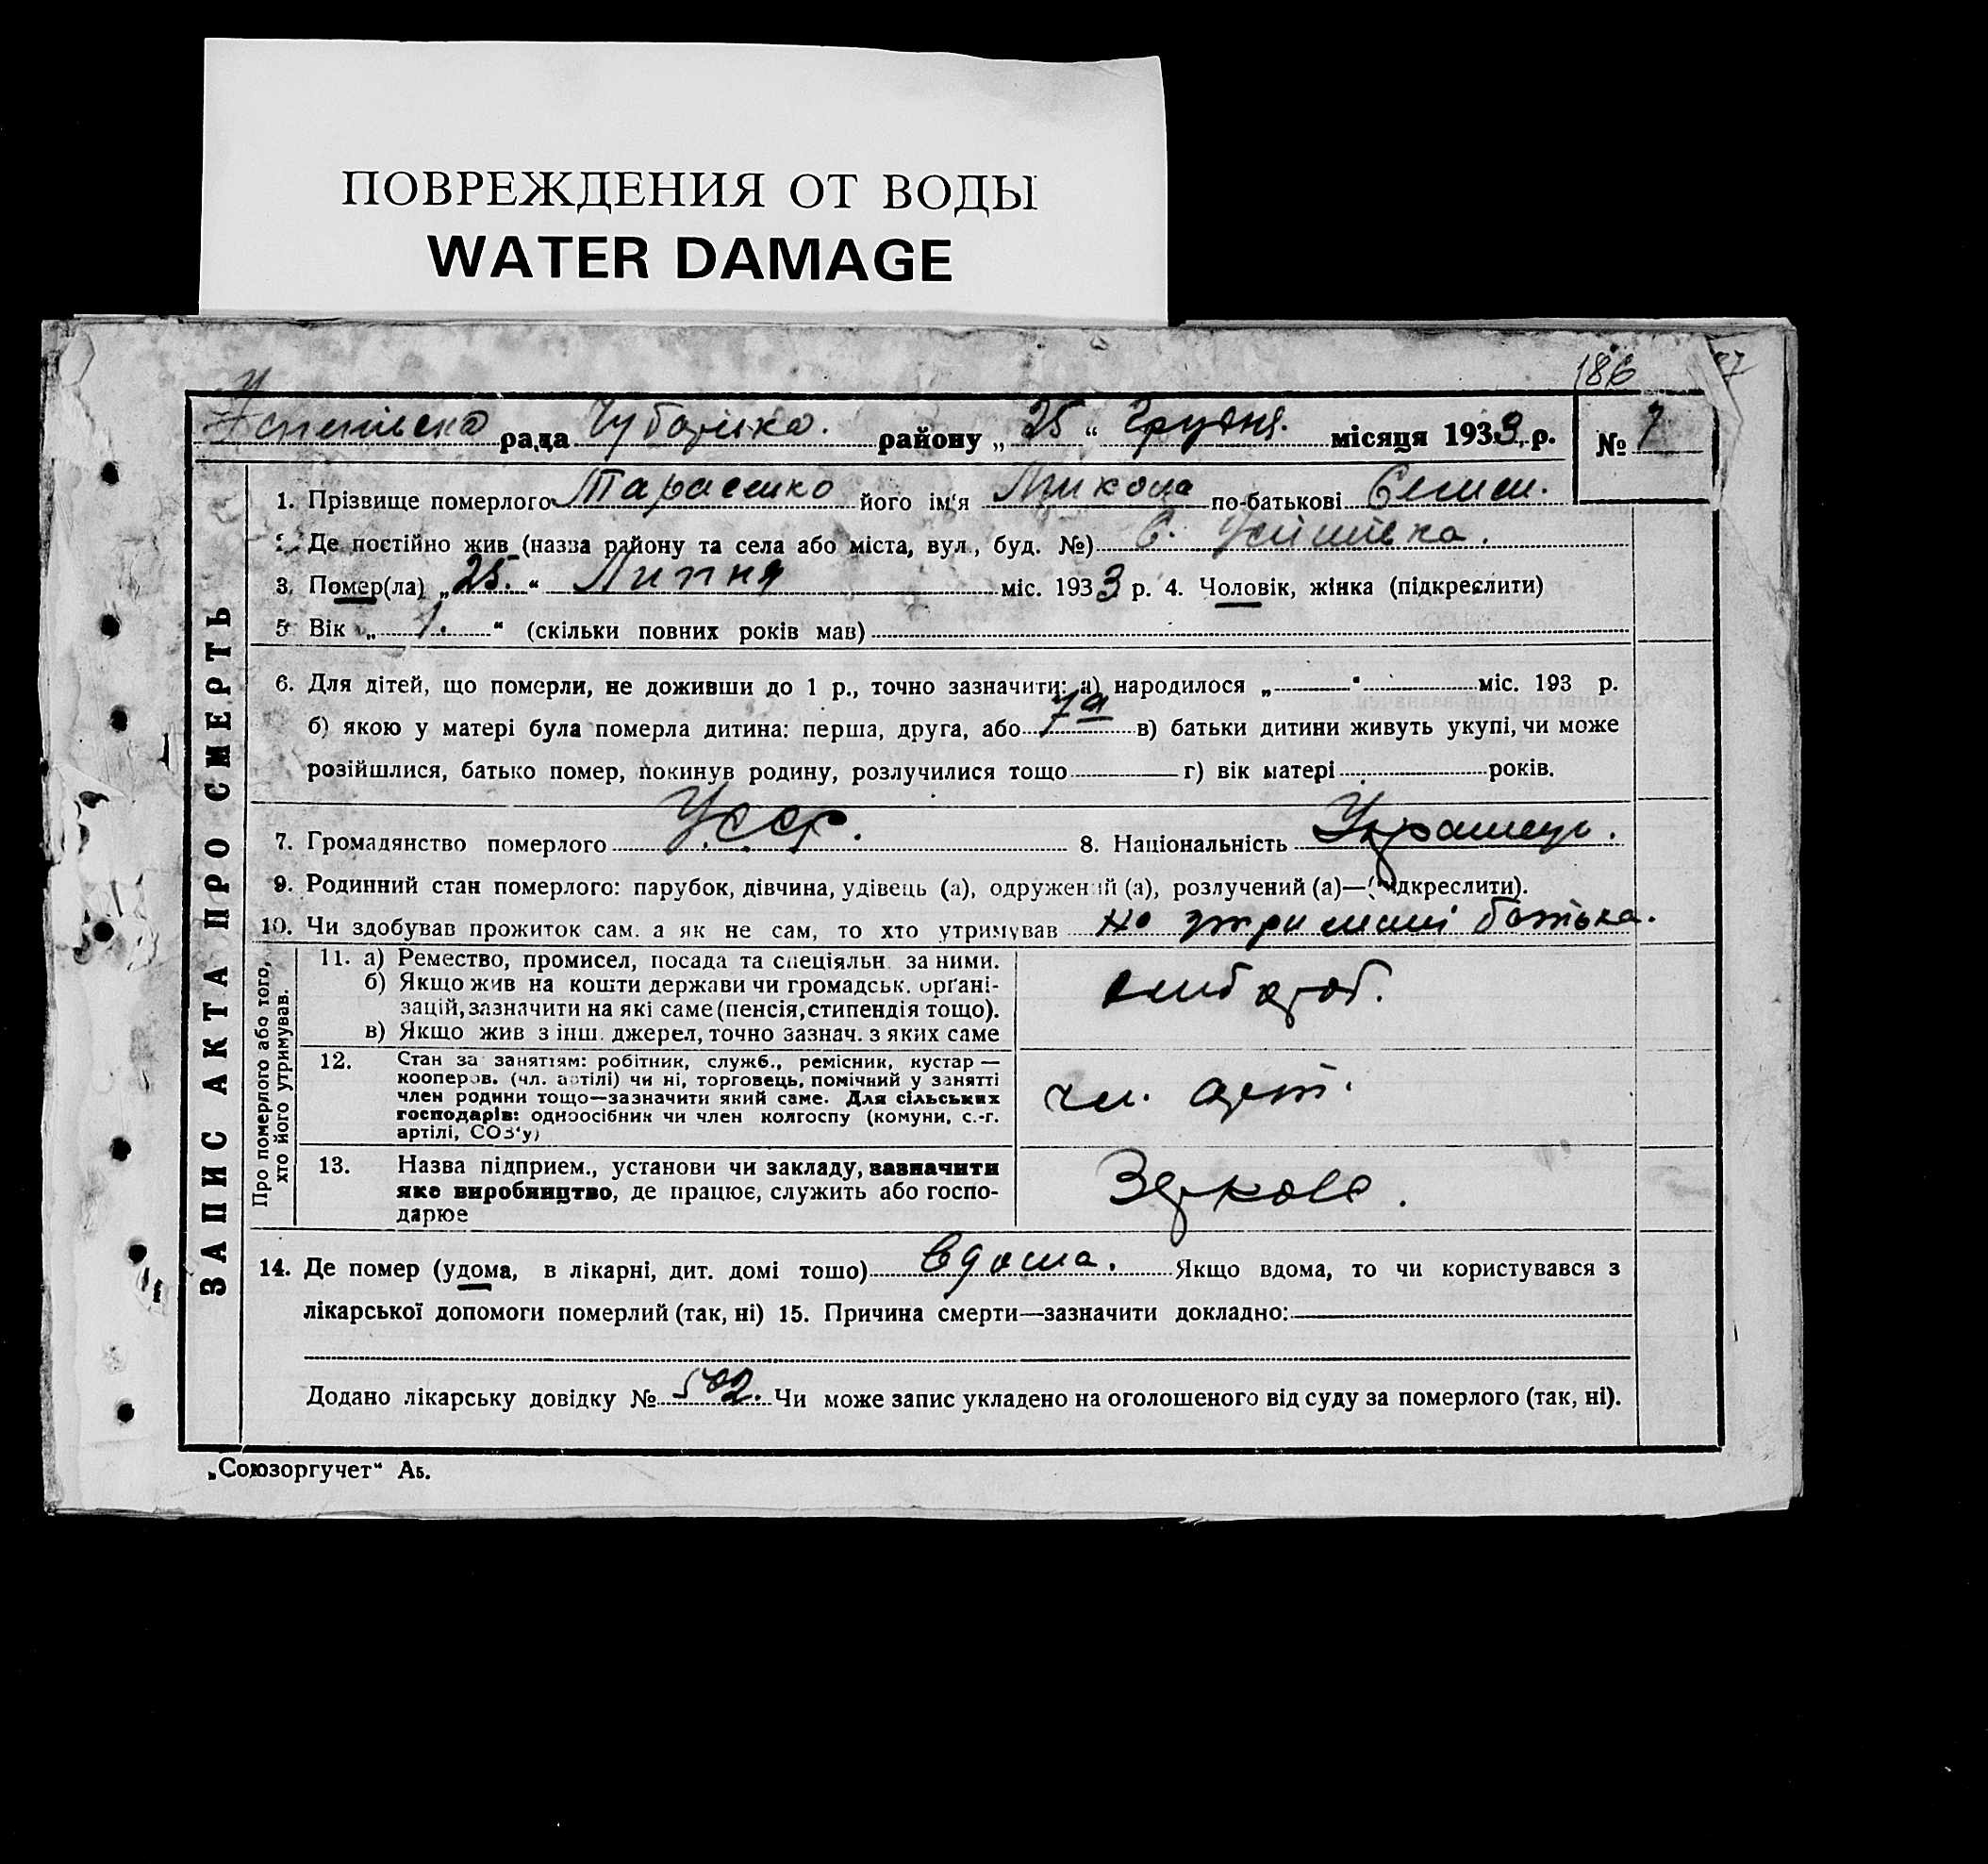 ПОВРЕЖДЕНИЯ ОТ ВОДЫ
WATER DAMAGE
186
рада Чубарівка. району „25“ Грудня. місяця 1933 р. № 7
ЗАПИС АКТА ПРО СМЕРТЬ
1. Прізвище померлого Тарасенко його ім'я Микола по-батькові Семен.
2. Де постійно жив (назва району та села або міста, вул., буд. №) С. Успенівка.
3. Помер(ла) „25.“ Липня міс. 1933 р. 4. Чоловік, жінка (підкреслити)
5 Вік „1.“ (скільки повних років мав)
6. Для дітей, що померли, не доживши до 1 р., точно зазначити: а) народилося „ “ міс. 193 р.
б) якою у матері була померла дитина: перша, друга, або 7а в) батьки дитини живуть укупі, чи може
розійшлися, батько помер, покинув родину, розлучилися тощо г) вік матері років.
7. Громадянство померлого УССР. 8. Національність Українець.
9. Родинний стан померлого: парубок, дівчина, удівець (а), одружений (а), розлучений (а)—(підкреслити).
10. Чи здобував прожиток сам. а як не сам, то хто утримував на утриманні батька.
Про померлого або того,
хто його утримував.
11. а) Ремество, промисел, посада та спеціяльн. за ними.
б) Якщо жив на кошти держави чи громадськ. орґані-
зацій, зазначити на які саме (пенсія, стипендія тощо).
в) Якщо жив з інш. джерел, точно зазнач. з яких саме
хлібороб.
12. Стан за заняттям: робітник, служб., ремісник, кустар —
кооперов. (чл. артілі) чи ні, торговець, помічний у занятті
член родини тощо—зазначити який саме. Для сільських
господарів: одноосібник чи член колгоспу (комуни, с.-г.
артілі, СОЗ'у)
чл. арт.
13. Назва підприєм., установи чи закладу, зазначити
яке виробництво, де працює, служить або госпо-
дарює
14. Де помер (удома, в лікарні, дит. домі тошо) вдома. Якщо вдома, то чи користувався з
лікарської допомоги померлий (так, ні) 15. Причина смерти—зазначити докладно:
Додано лікарську довідку № 502. Чи може запис укладено на оголошеного від суду за померлого (так, ні).
„Союзоргучет“ А5.